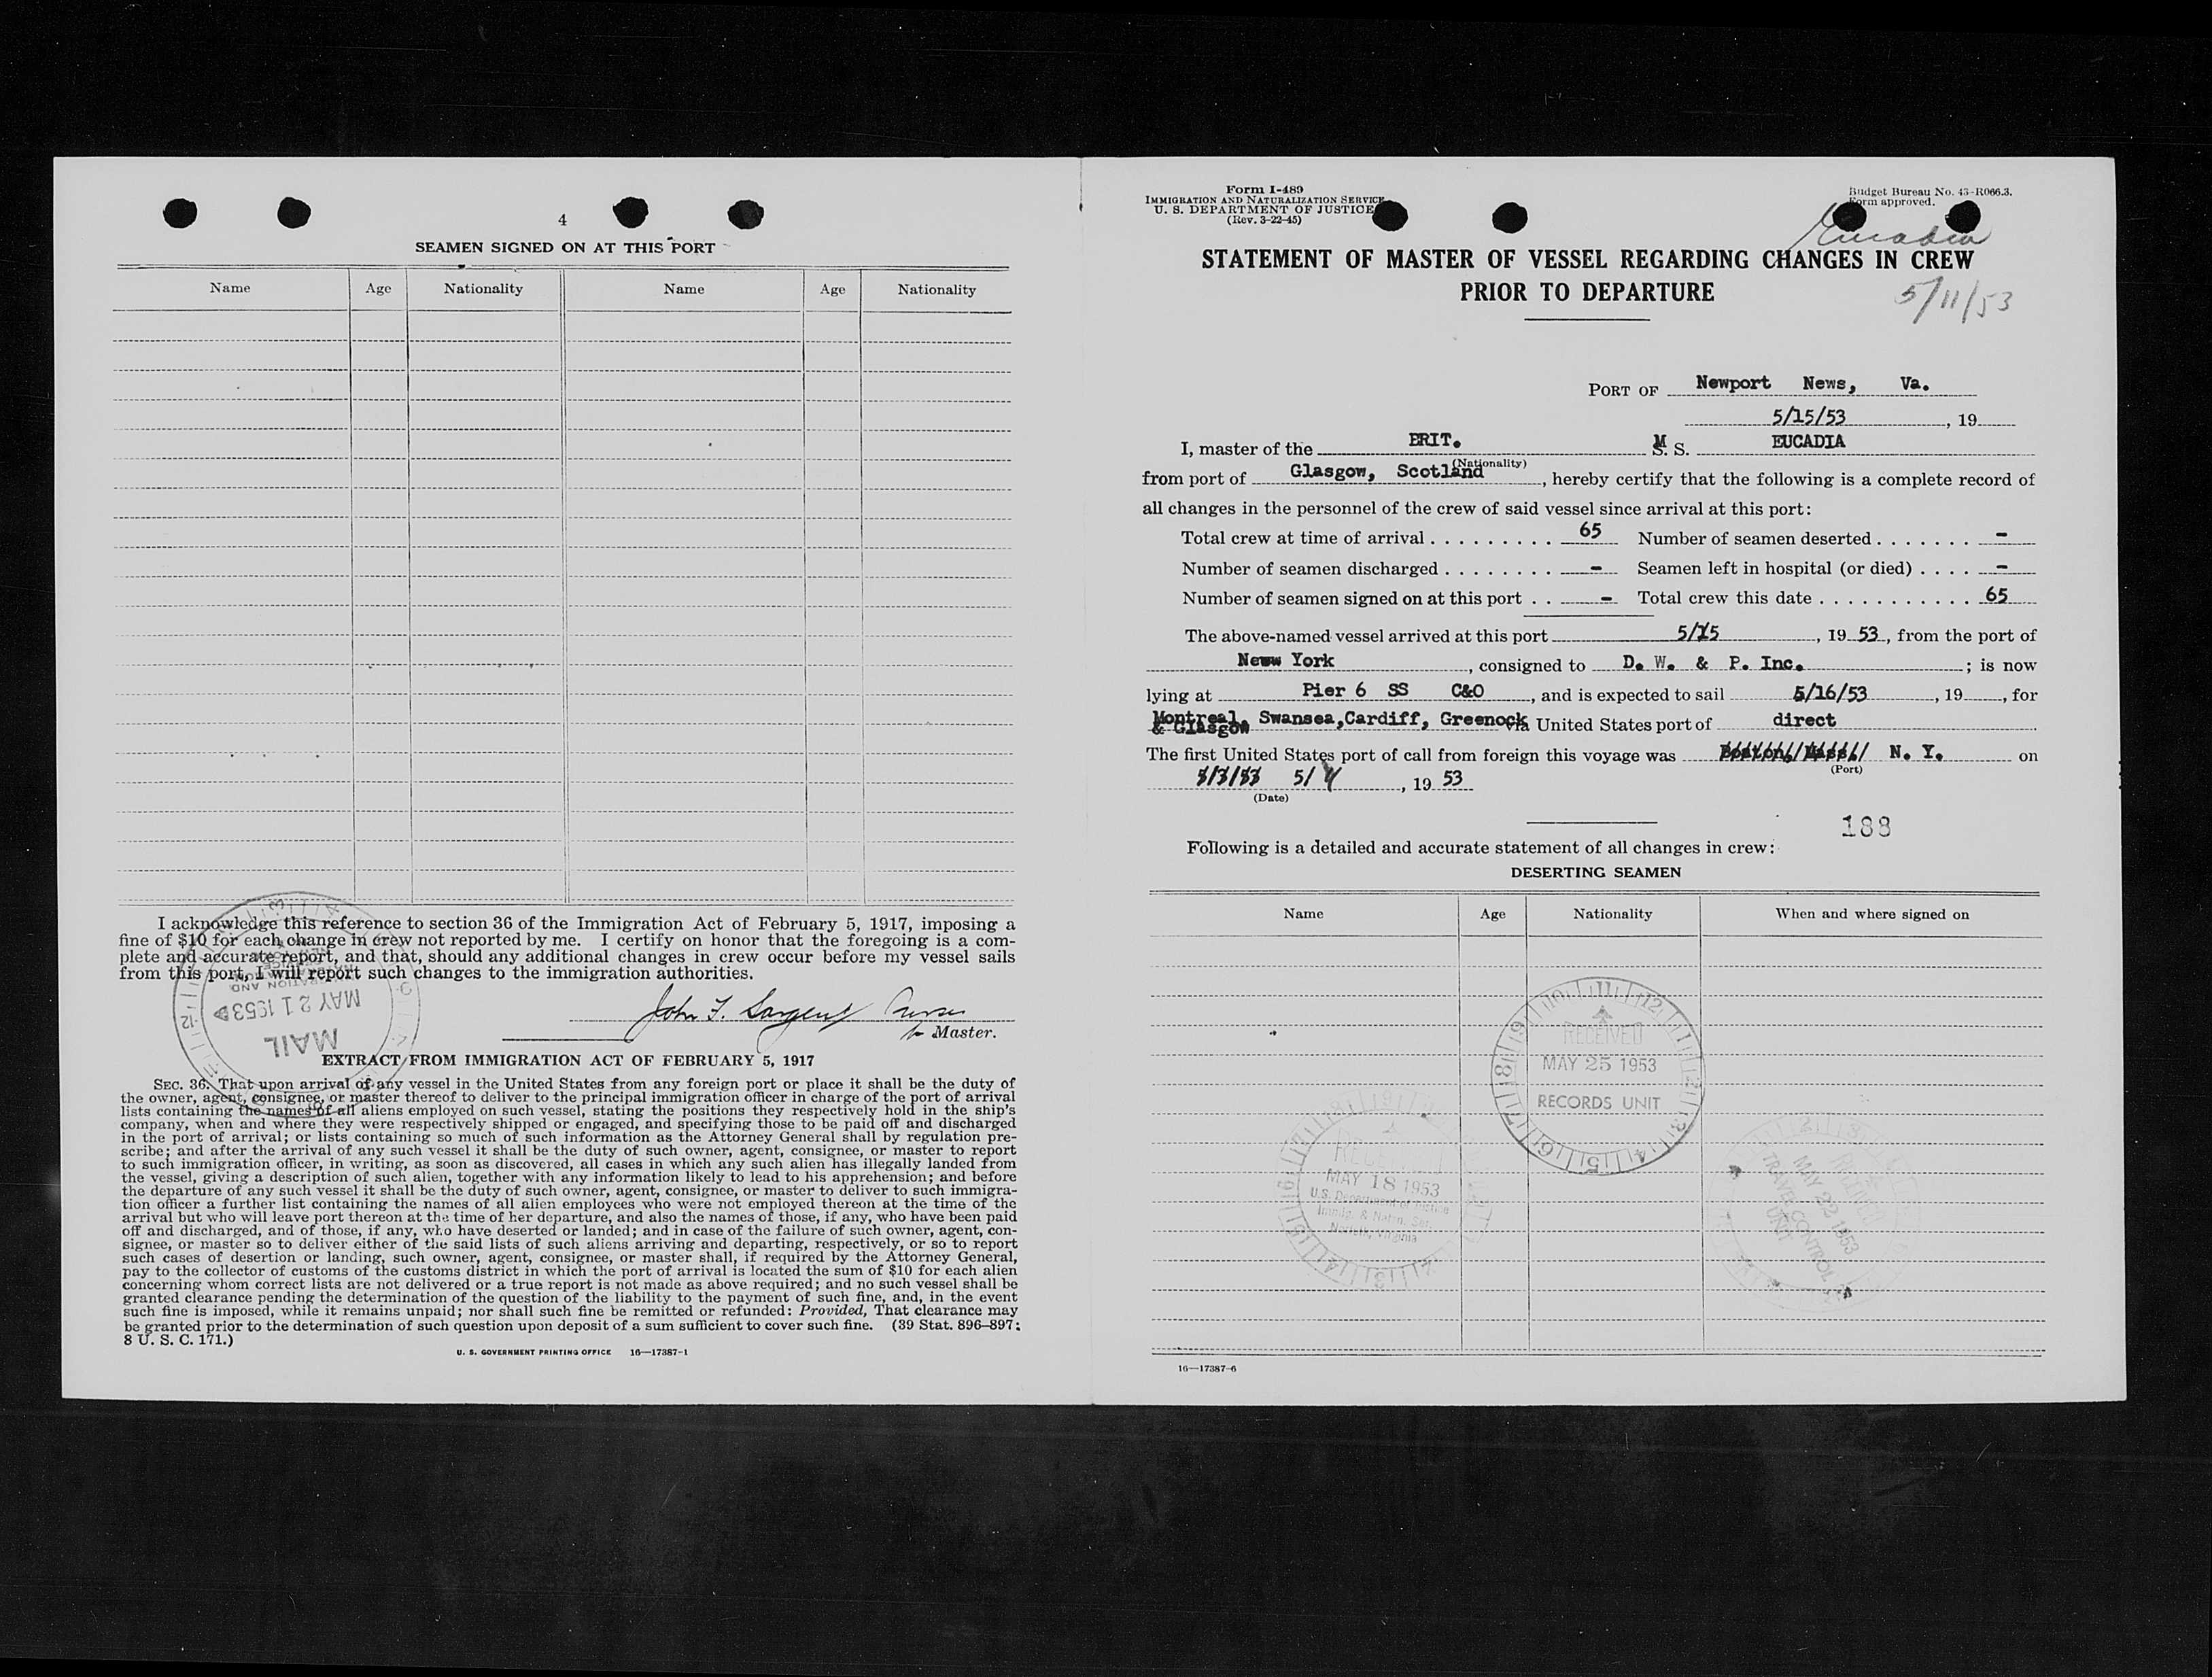 4
SEAMEN SIGNED ON AT THIS PORT
Name Age Nationality Name Age Nationality
I acknowledge this reference to section 36 of the Immigration Act of February 5, 1917, imposing a
fine of $10 for each change in crew not reported by me. I certify on honor that the foregoing is a com-
plete and accurate report, and that, should any additional changes in crew occur before my vessel sails
from this port, I will report such changes to the immigration authorities.
MAIL
MAY 21 1953
John F. Sargent Purser
for Master.
EXTRACT FROM IMMIGRATION ACT OF FEBRUARY 5, 1917
SEC. 36. That upon arrival of any vessel in the United States from any foreign port or place it shall be the duty of
the owner, agent, consignee, or master thereof to deliver to the principal immigration officer in charge of the port of arrival
lists containing the names of all aliens employed on such vessel, stating the positions they respectively hold in the ship's
company, when and where they were respectively shipped or engaged, and specifying those to be paid off and discharged
in the port of arrival; or lists containing so much of such information as the Attorney General shall by regulation pre-
scribe; and after the arrival of any such vessel it shall be the duty of such owner, agent, consignee, or master to report
to such immigration officer, in writing, as soon as discovered, all cases in which any such alien has illegally landed from
the vessel, giving a description of such alien, together with any information likely to lead to his apprehension; and before
the departure of any such vessel it shall be the duty of such owner, agent, consignee, or master to deliver to such immigra-
tion officer a further list containing the names of all alien employees who were not employed thereon at the time of the
arrival but who will leave port thereon at the time of her departure, and also the names of those, if any, who have been paid
off and discharged, and of those, if any, who have deserted or landed; and in case of the failure of such owner, agent, con-
signee, or master so to deliver either of the said lists of such aliens arriving and departing, respectively, or so to report
such cases of desertion or landing, such owner, agent, consignee, or master shall, if required by the Attorney General,
pay to the collector of customs of the customs district in which the port of arrival is located the sum of $10 for each alien
concerning whom correct lists are not delivered or a true report is not made as above required; and no such vessel shall be
granted clearance pending the determination of the question of the liability to the payment of such fine, and, in the event
such fine is imposed, while it remains unpaid; nor shall such fine be remitted or refunded: Provided, That clearance may
be granted prior to the determination of such question upon deposit of a sum sufficient to cover such fine. (39 Stat. 896–897;
8 U. S. C. 171.)
U. S. GOVERNMENT PRINTING OFFICE 16—17387-1
Form I-489
IMMIGRATION AND NATURALIZATION SERVICE
U. S. DEPARTMENT OF JUSTICE
(Rev. 3-22-45)
Budget Bureau No. 43-R066.3.
Form approved.
Eucadia
STATEMENT OF MASTER OF VESSEL REGARDING CHANGES IN CREW
PRIOR TO DEPARTURE
5/11/53
PORT OF Newport News, Va.
5/15/53, 19
I, master of the BRIT. M S. S. EUCADIA
(Nationality)
from port of Glasgow, Scotland, hereby certify that the following is a complete record of
all changes in the personnel of the crew of said vessel since arrival at this port:
Total crew at time of arrival 65 Number of seamen deserted -
Number of seamen discharged - Seamen left in hospital (or died) -
Number of seamen signed on at this port - Total crew this date 65
The above-named vessel arrived at this port 5/15, 19 53, from the port of
New York, consigned to D. W. & P. Inc.; is now
lying at Pier 6 SS C&O, and is expected to sail 5/16/53, 19, for
Montreal, Swansea, Cardiff, Greenock & Glasgow via United States port of direct
The first United States port of call from foreign this voyage was Boston, Mass. N. Y. on
(Port)
5/3/53 5/4, 19 53
(Date)
188
Following is a detailed and accurate statement of all changes in crew:
DESERTING SEAMEN
Name Age Nationality When and where signed on
RECEIVED
MAY 25 1953
RECORDS UNIT
RECEIVED
MAY 18 1953
U.S. Department of Justice
Immig. & Natzn. Ser.
Norfolk, Virginia
RECEIVED
MAY 22 1953
TRAVEL CONTROL
UNIT
16—17387-6